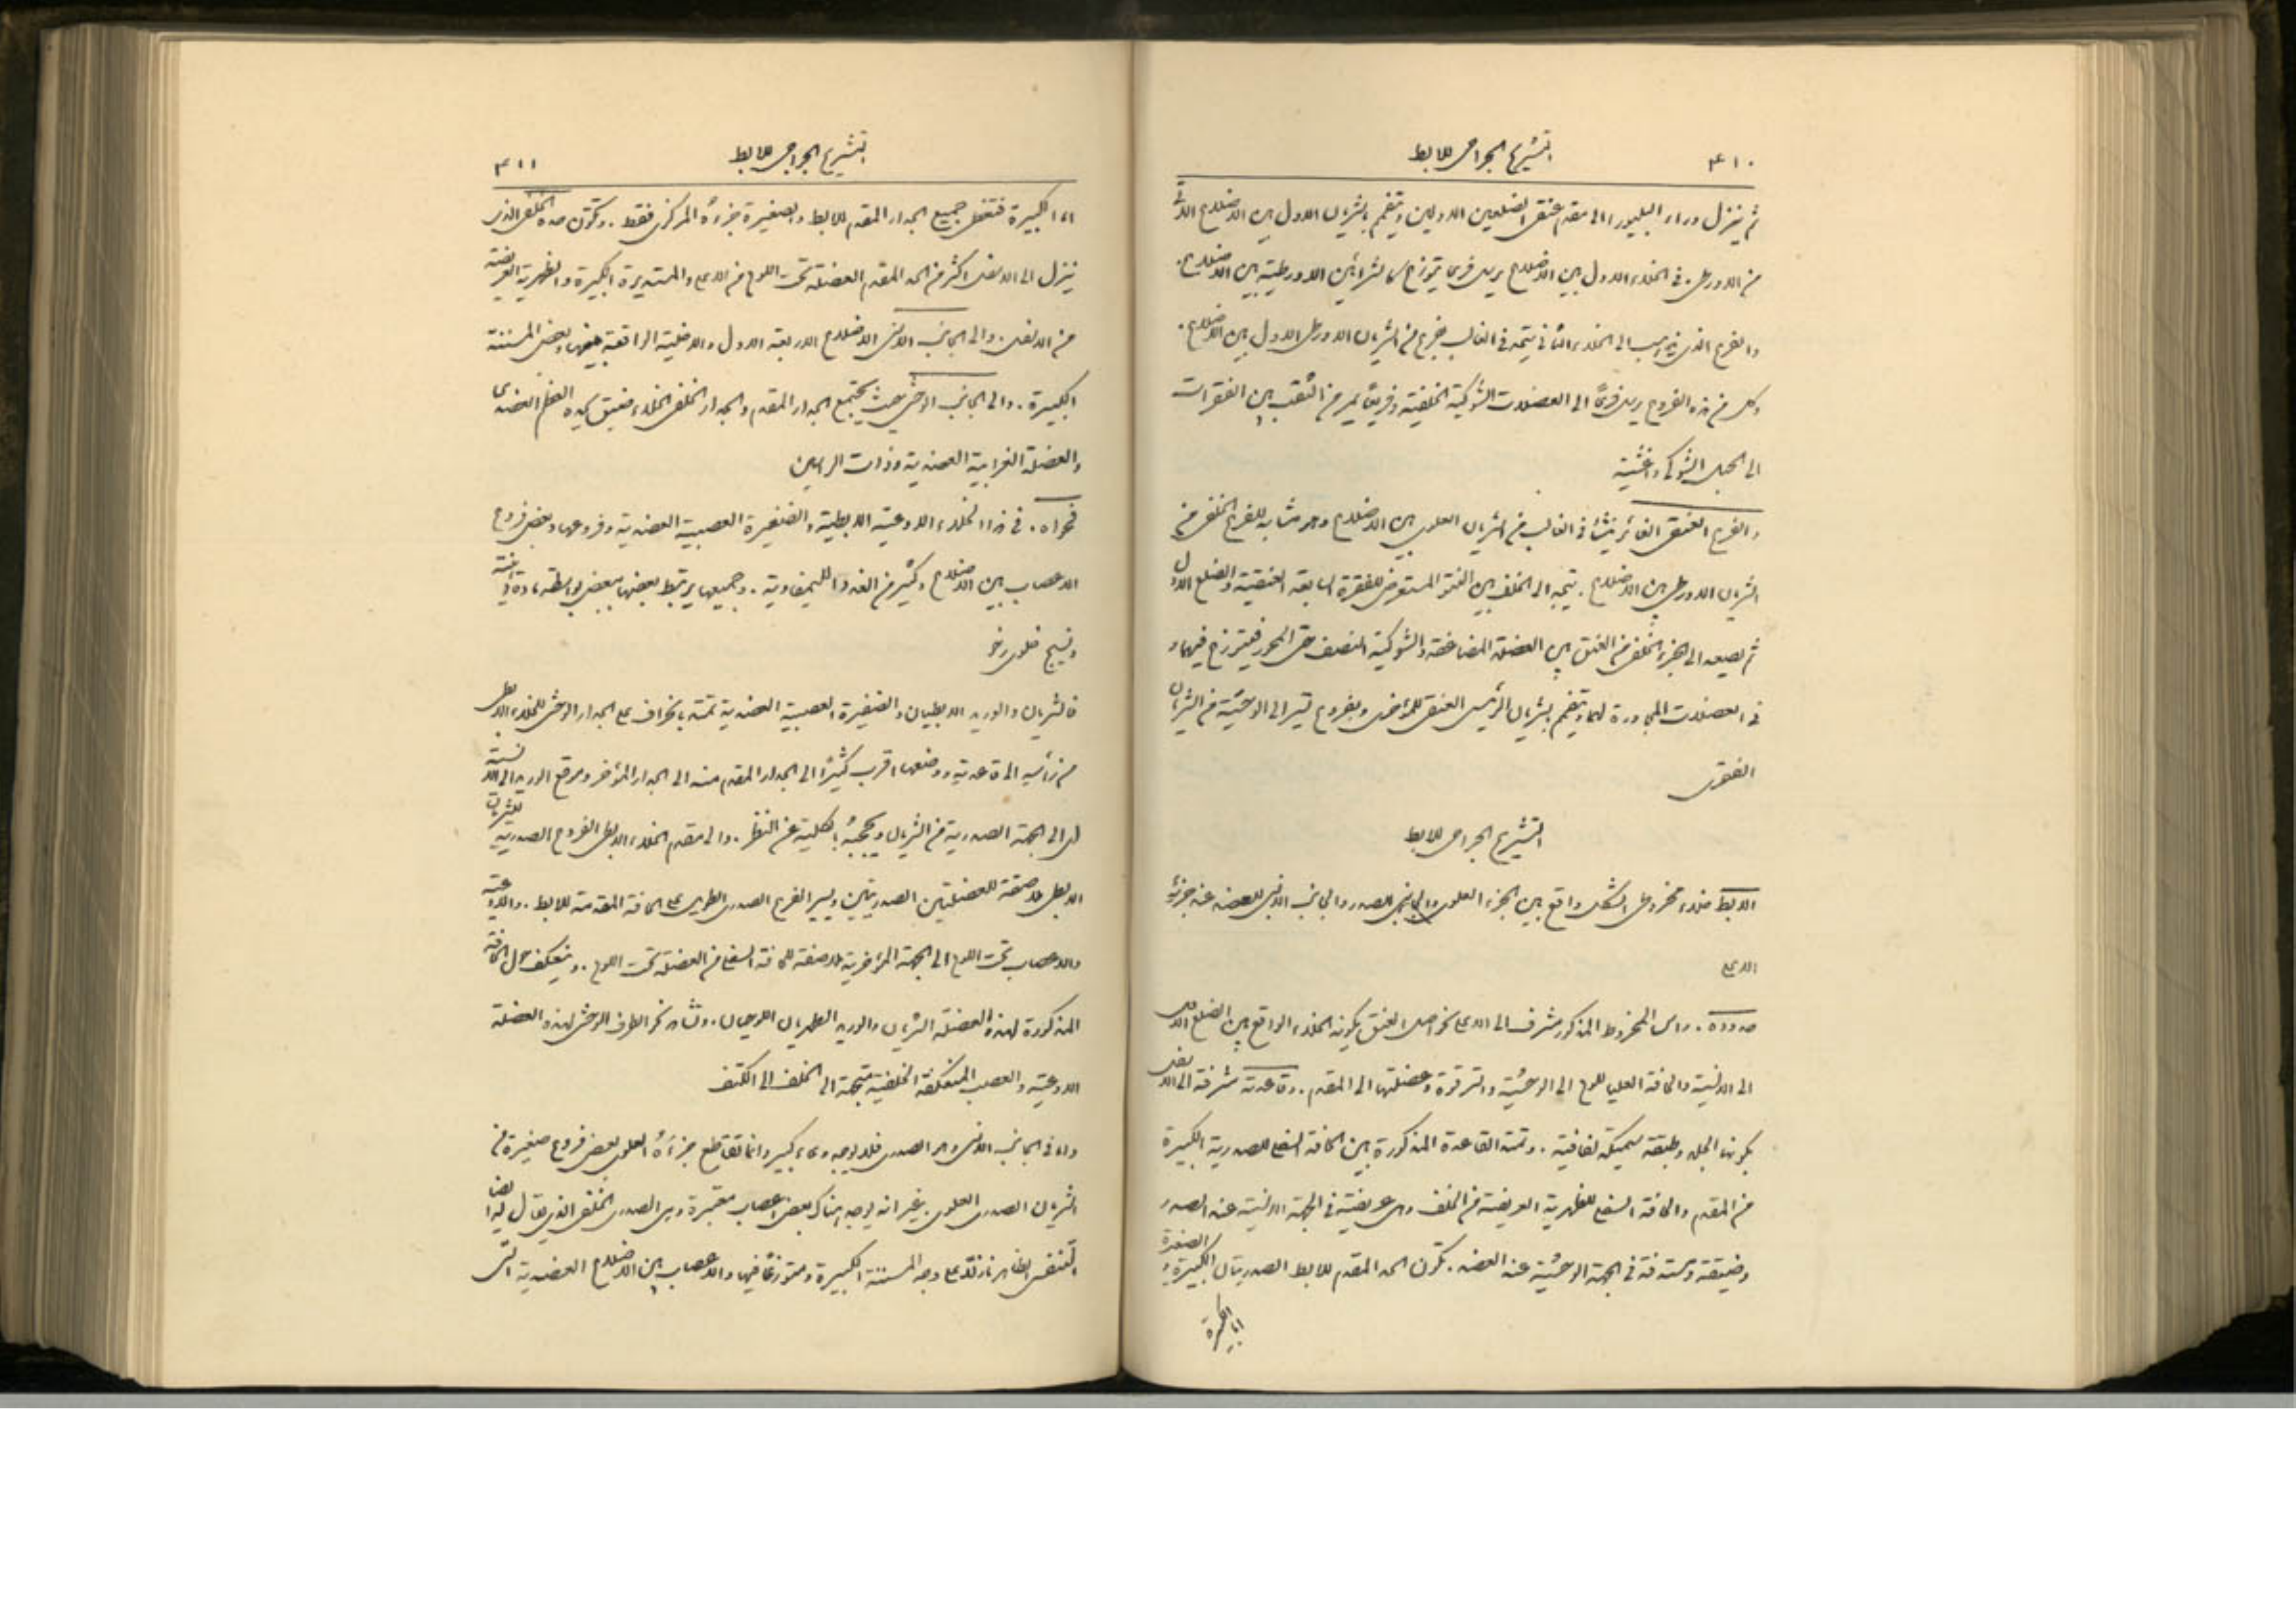 ٤١٠
التشريح الجراحي للابط
ثم ينزل وراء البليورا الى مقدم عنق الضلعين الاولين ويتفمم بالشريان الاول بين الاضلاع الآتي
من الاورطى. في الخلاء الاول بين الاضلاع يرسل فرعًا يتوزع كالشرائين الاورطية بين الاضلاع.
والفرع الذي يذهب الى الخلاء الثاني يتحد في الغالب بفرع من الشريان الاورطي الاول بين الاضلاع.
وكل من هذه الفروع يرسل فرعًا الى العضلات الشوكية الخلفية وفرعًا يمر من الثقب بين الفقرات
الى الحبل الشوكي واغشيته
والفرع العنقي الغائر ينشأ في الغالب من الشريان العلوي بين الاضلاع وهو مشابه للفرع الخلفي من
الشريان الاورطي بين الاضلاع. يتجه الى الخلف بين النتو المستعرض للفقرة السابعة العنقية والضلع الاول
ثم يصعد الى الجزء الخلفي من العنق بين العضلة المضاعفة والشوكية النصف حتى المحور فيتوزع فيهما و
في العضلات المجاورة لهما ويتفمم بشريان الرئيسي العنقي للمؤخري وبفروع تسير الى الوحشية من الشريان
الفقري
التشريح الجراحي للابط
الابط خلاء مخروطي الشكل واقع بين الجزء العلوي والجانبي للصدر والجانب الانسي للعضد عند جزئه
الاعلى
حدوده. راس المخروط المذكور مشرف الى الاعلى نحو اصل العنق يكونه الخلاء الواقع بين الضلع الاول
الى الانسية والحافة العليا للوح الى الوحشية والترقوة وعضلتها الى المقدم. وقاعدته مشرفة الى الاسفل
يكونها الجلد وطبقة سميكة لفافية. وتمتد القاعدة المذكورة بين الحافة السفلى للصدرية الكبيرة
من المقدم والحافة السفلى للظهرية العريضة من الخلف وهي عريضة في الجهة الانسية عند الصدر
وضيقة ومستدقة في الجهة الوحشية عند العضد. تكون الحد المقدم للابط الصدريتان الكبيرة والصغيرة
اما الكبيرة
٤١١
التشريح الجراحي للابط
اما الكبيرة فتغطي جميع الجدار المقدم للابط والصغيرة جزءه المركزي فقط. وتكون حده الخلفي الذي
ينزل الى الاسفل اكثر من الحد المقدم العضلة تحت اللوح من الاعلى والمستديرة الكبيرة والظهرية العريضة
من الاسفل. والى الجانب الانسي الاضلاع الاربعة الاول والاخلية الواقعة بينها وبعض المسننة
الكبيرة. والى الجانب الوحشي حيث يجتمع الجدار المقدم والجدار الخلفي الخلاء ضيق يحده العظم العضدي
والعضلة الغرابية العضدية وذات الراسين
فحواه. في هذا الخلاء الاوعية الابطية والضفيرة العصبية العضدية وفروعها وبعض فروع
الاعصاب بين الاضلاع وكثير من الغدد الليمفاوية. وجميعها يرتبط بعضها ببعض بواسطة مادة دهنية
ونسيج خلوي رخو
فالشريان والوريد الابطيان والضفيرة العصبية العضدية تمتد بانحراف على الجدار الوحشي للخلاء الابطي
من رأسه الى قاعدته ووضعها اقرب كثيرًا الى الجدار المقدم منه الى الجدار المؤخر وموقع الوريد الى الانسية
اي الى الجهة الصدرية من الشريان ويحجبه بالكلية عن النظر. والى مقدم الخلاء الابطي الفروع الصدرية للشريان
الابطي ملاصقة للعضلتين الصدريتين ويسير الفرع الصدري الطويل على الحافة المقدمة للابط. والاوعية
والاعصاب تحت اللوح الى الجهة المؤخرية ملاصقة للحافة السفلى من العضلة تحت اللوح. وينعكف حول الحافة
المذكورة لهذه العضلة الشريان والوريد الظهريان اللوحيان. وتشاهد نحو الطرف الوحشي لهذه العضلة
الاوعية والعصب المنعكفة الخلفية متجهة الى الخلف الى الكتف
واما في الجانب الانسي وهو الصدري فلا يوجد وعاء كبير وانما تقاطع جزءَهُ العلوي بعض فروع صغيرة من
الشريان الصدري العلوي. بغير انه يوجد هناك بعض اعصاب معتبرة وهي الصدري الخلفي الذي يقال له ايضا
التنفسي الظاهر نازلًا على وجه المسننة الكبيرة ومتوزعًا فيها والاعصاب بين الاضلاع العضدية التي